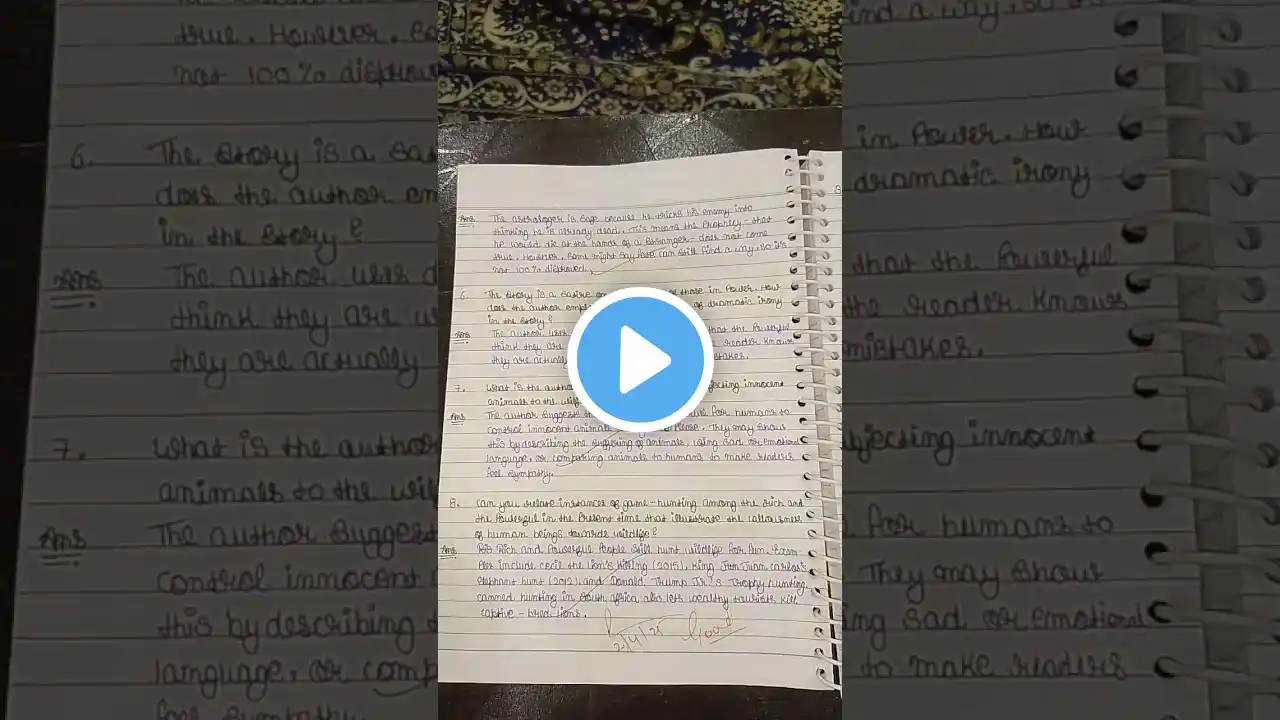 Ans The astrologer is safe because he tricks his enemy into
thinking he is already dead. This means the Prophecy - that
he would die at the hands of a stranger - does not come
true. However, some might say fate can still find a way, so it's
not 100% disproved.
6. The Story is a satire on those in Power. How
does the author empl of dramatic irony
in the Story?
Ans The author uses that the Powerful
think they are the reader knows
they are actually mistakes.
7. What is the autho bjecting innocent
animals to the
Ans The author suggests for humans to
control innocent animals Please. They may show
this by describing the suffering of animals, using sad or emotional
language, or comparing animals to humans to make readers
feel sympathy.
8. Can you relate instances of game-hunting among the rich and
the Powerful in the Present time that illustrate the callousness
of human beings towards wildlife?
Ans Rich and Powerful People still hunt wildlife for fun. Exam
ples include Cecil the lion's killing (2015), King Juan Carlos's
elephant hunt (2012), and Donald Trump Jr.'s Trophy hunting.
canned hunting in South Africa also lets wealthy tourists kill
captive-bred lions.
Good